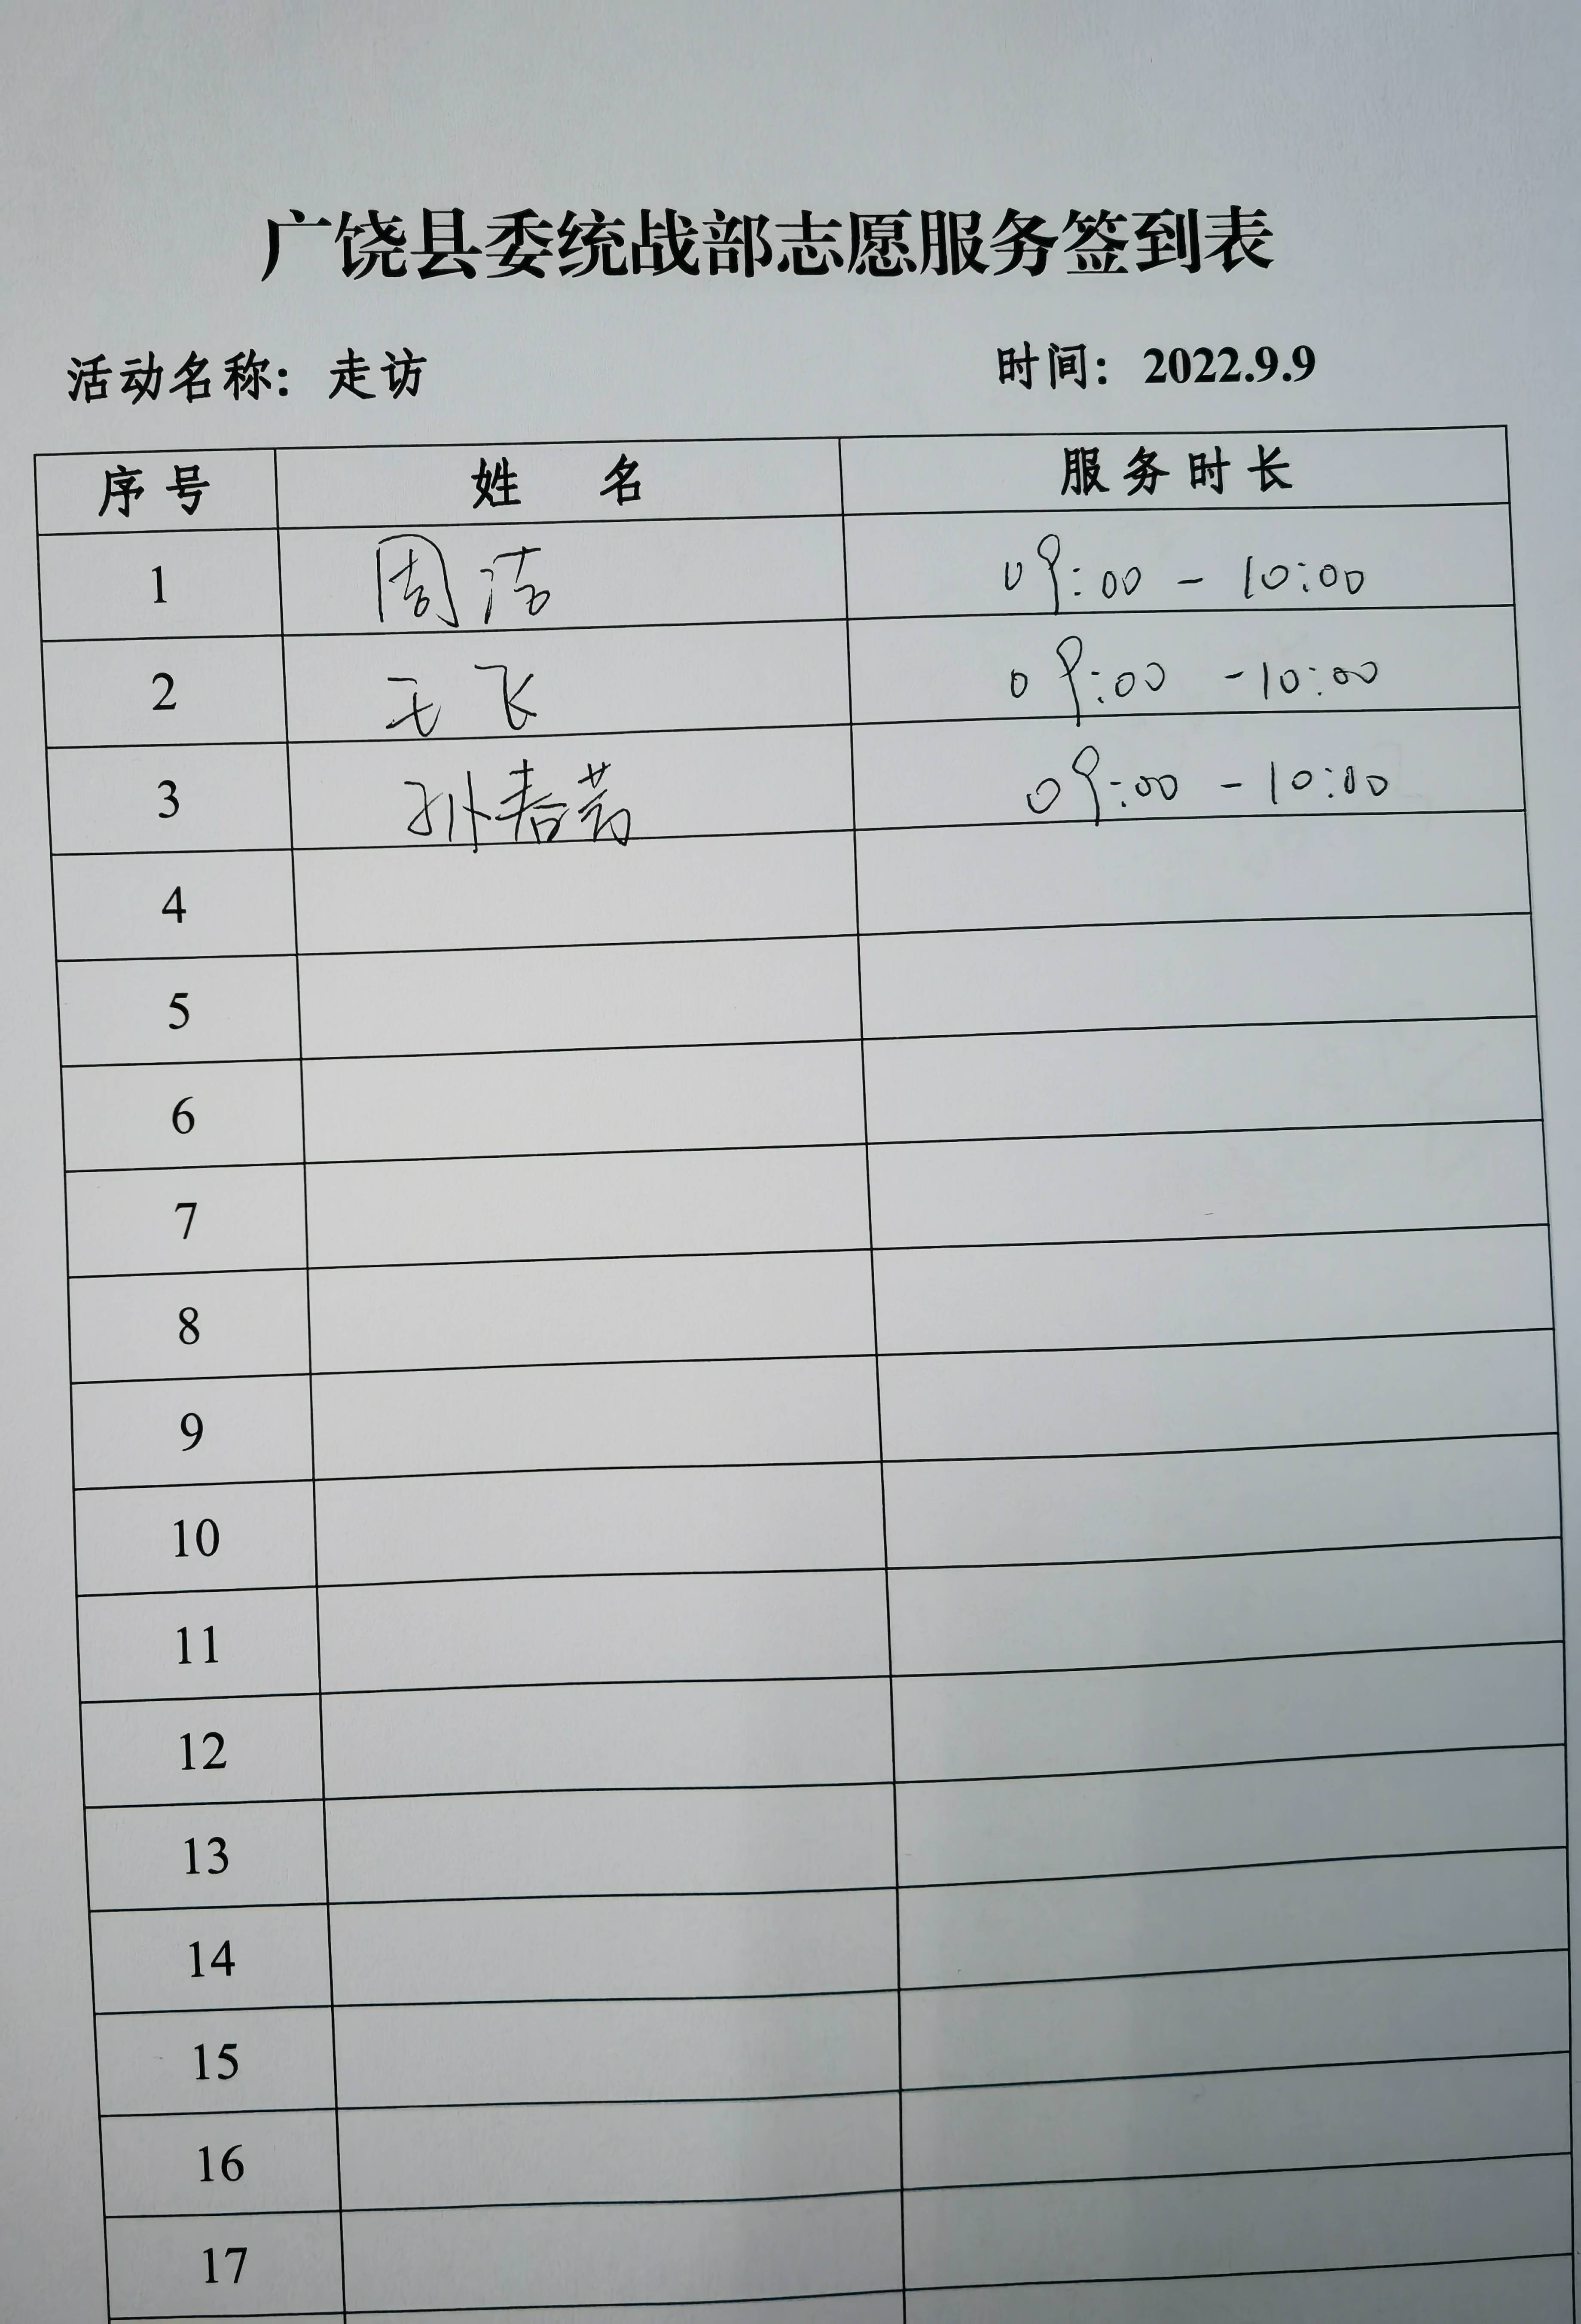 广饶县委统战部志愿服务签到表
活动名称：走访 时间：2022.9.9
序号 姓 名 服务时长
1 周洁 09:00 - 10:00
2 王飞 09:00 -10:00
3 孙春芳 09:00 -10:00
4
5
6
7
8
9
10
11
12
13
14
15
16
17